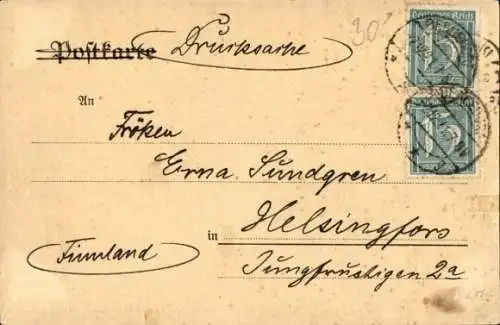 Postkarte Drucksache
30
Deutsches Reich
15
15
An
Fröken
Erna Sundgren
in Helsingfors
Finnland
Jungfrustigen 2a